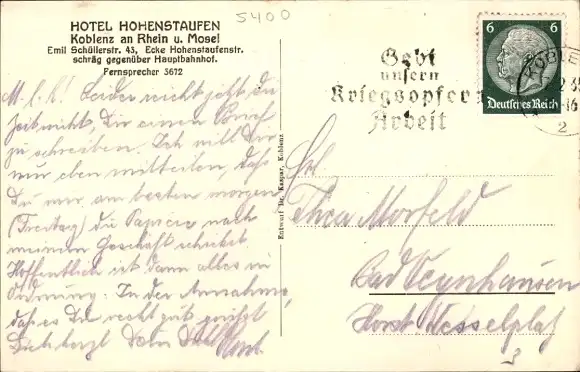 5400
HOTEL HOHENSTAUFEN
Koblenz an Rhein u. Mosel
Emil Schüllerstr. 43, Ecke Hohenstaufenstr.
schräg gegenüber Hauptbahnhof.
Fernsprecher 5672
M. l. K! Leider reicht jetzt die
Zeit nicht, Dir einen Brief
zu schreiben. Ich will Dir
nur eben mitteilen, daß
Du mir am besten morgen
(Freitag) die Papiere nach
meinem Geschäft schickst.
Hoffentlich ist dann alles in
Ordnung. In der Annahme,
daß es Dir recht gut geht
Dich herzl. Dein
Horst
Entwurf Dr. Kaspar, Koblenz
Gebt
unsern
Kriegsopfern
Arbeit
6 6
Deutsches Reich
KOBLE
2
Frl.
Thea Morfeld
Bad Oeynhausen
Horst Wesselplatz
3